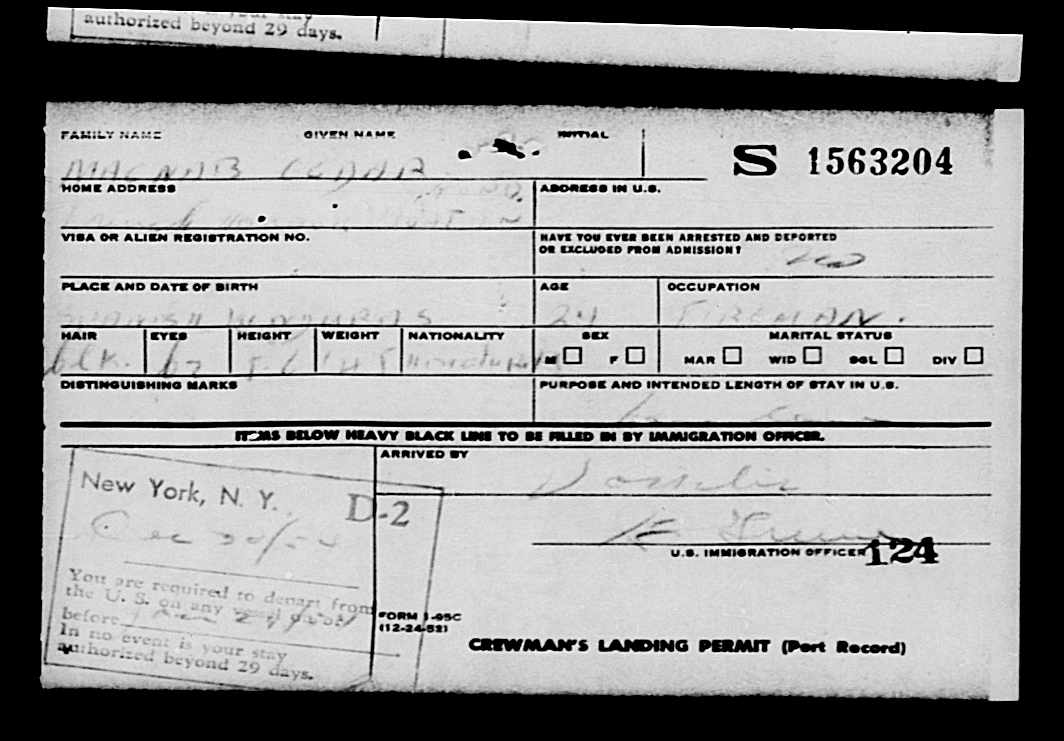 authorized beyond 29 days.
FAMILY NAME GIVEN NAME INITIAL
S 1563204
MACNAB
HOME ADDRESS ADDRESS IN U.S.
VISA OR ALIEN REGISTRATION NO. HAVE YOU EVER BEEN ARRESTED AND DEPORTED
OR EXCLUDED FROM ADMISSION?
no
PLACE AND DATE OF BIRTH AGE OCCUPATION
HONDURAS 24 FIREMAN.
HAIR EYES HEIGHT WEIGHT NATIONALITY SEX MARITAL STATUS
M F MAR WID SGL DIV
blk. 5-6 145
DISTINGUISHING MARKS PURPOSE AND INTENDED LENGTH OF STAY IN U.S.
ITEMS BELOW HEAVY BLACK LINE TO BE FILLED IN BY IMMIGRATION OFFICER.
ARRIVED BY
New York, N. Y.
D-2
Dec
U.S. IMMIGRATION OFFICER 124
You are required to depart from
the U. S. on any vessel on or
before Jan
In no event is your stay
authorized beyond 29 days.
FORM I-95C
(12-24-52)
CREWMAN'S LANDING PERMIT (Port Record)